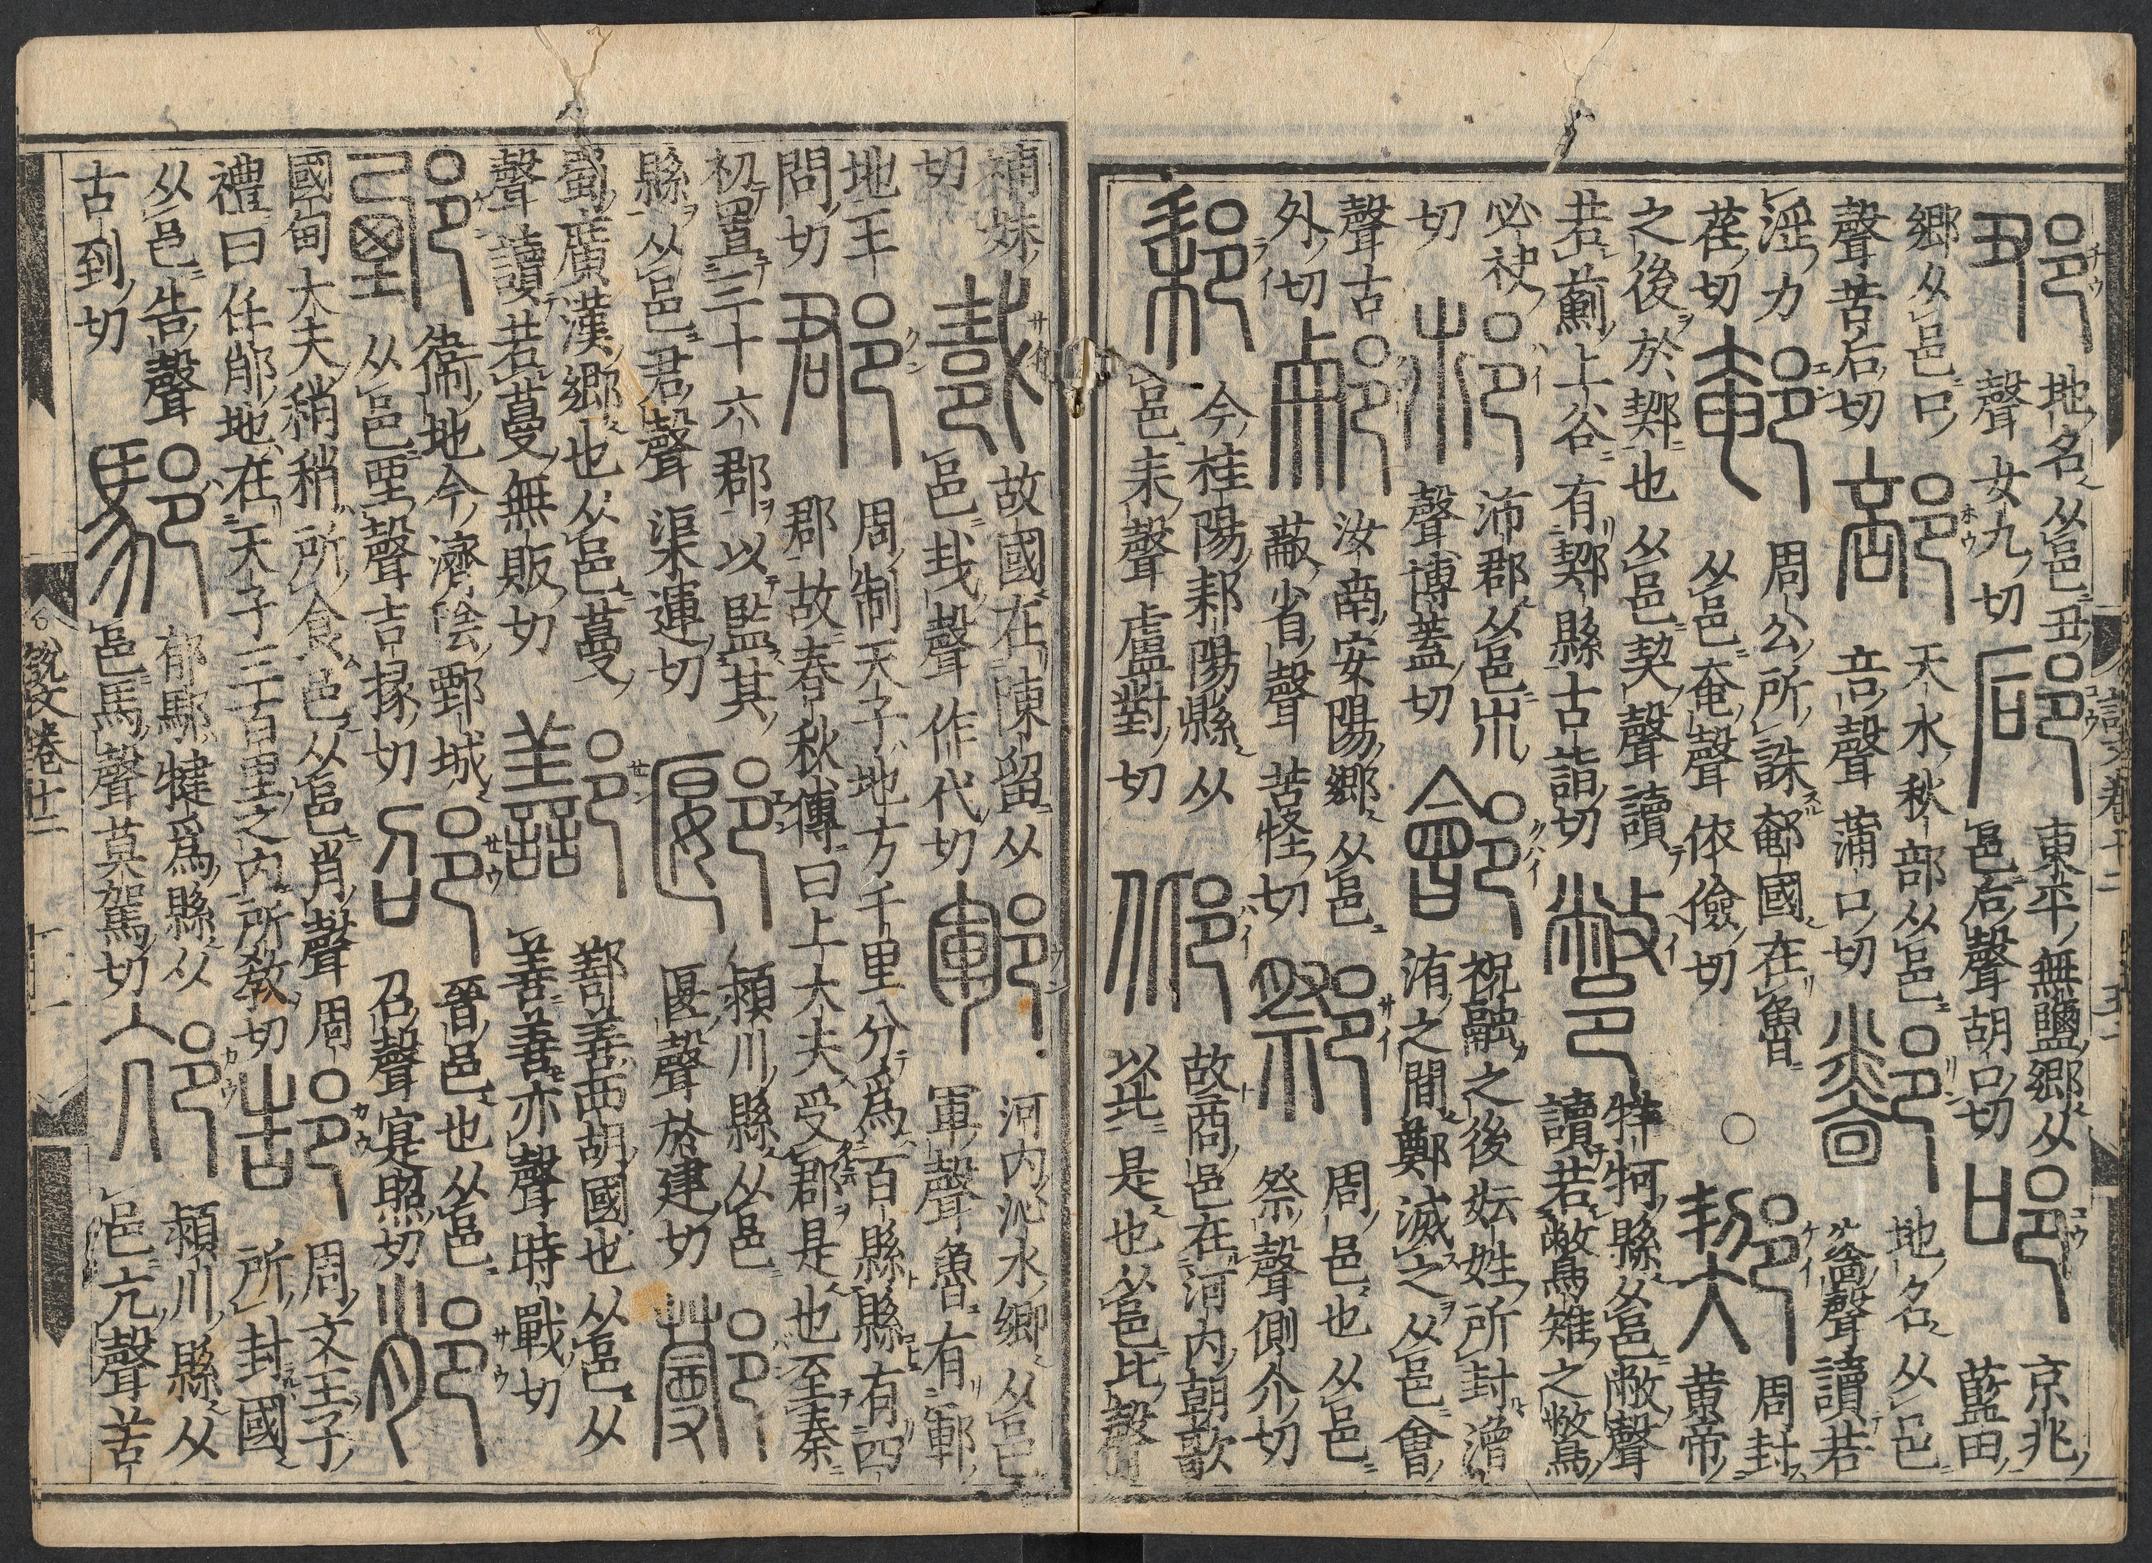 地名从邑丑聲女九切郈東平無鹽鄉从邑后聲胡口切京兆藍田
鄉从邑口聲苦后切部天水秋部从邑咅聲蒲口切地名从邑聲讀若
淫力荏切周公所誅國在魯从邑奄聲依儉切○周封黄帝
之後於也从邑契聲讀若薊上谷有縣古詣切鄨牂牁縣从邑敝聲讀若鷩雉之鷩
必袂切沛郡从邑巿聲博蓋切鄶祝融之後妘姓所封潧洧之間鄭滅之从邑會
聲古外切汝南安陽鄉从邑蔽省聲苦怪切鄒周邑也从邑祭聲側介切
今桂陽耒陽縣从邑耒聲盧對切邶故商邑在河内朝歌以北是也从邑北聲
補妹切故國在陳留从邑𢦏聲作代切鄆河内沁水鄉从邑軍聲魯有鄆
地王問切郡周制天子地方千里分爲百縣縣有四郡故春秋傳曰上大夫受郡是也至秦
初置三十六郡以監其縣从邑君聲渠運切郾潁川縣从邑匽聲於建切
蜀廣漢鄉也从邑蔓聲讀若蔓無販切鄯鄯善西胡國也从邑从善善亦聲時戰切
鄄衛地今濟陰鄄城从邑垔聲吉掾切邵晉邑也从邑召聲寔照切
國甸大夫稍稍所食邑从邑肖聲周禮曰任地在天子三百里之内所敎切郜周文王子所封國
从邑告聲古到切犍爲縣从邑馬聲莫駕切邟潁川縣从邑亢聲苦
說文卷十二